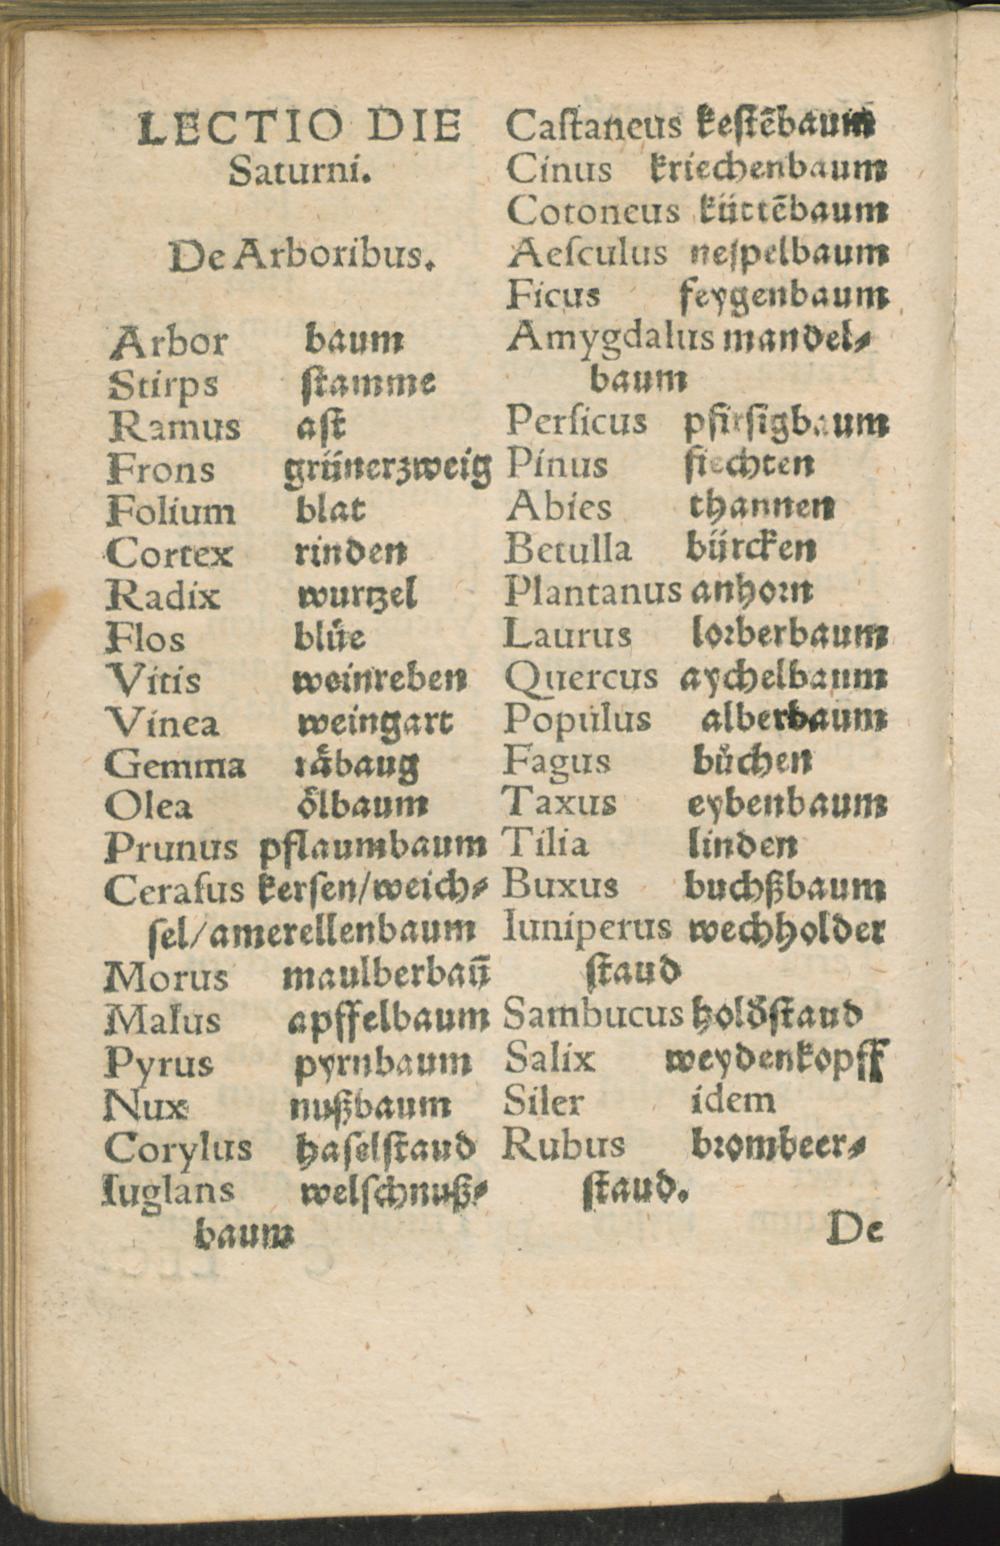 LECTIO DIE
Saturni.
De Arboribus.
Arbor baum
Stirps ſtamme
Ramus aſt
Frons grünerzweig
Folium blat
Cortex rinden
Radix wurtzel
Flos blüe
Vitis weinreben
Vinea weingart
Gemma råbaug
Olea ölbaum
Prunus pflaumbaum
Ceraſus kerſen/weich⸗
ſel/amerellenbaum
Morus maulberbaū
Malus apffelbaum
Pyrus pyrnbaum
Nux nußbaum
Corylus haſelſtaud
Iuglans welſchnuß⸗
baum
Caſtaneus keſtēbaum
Cinus kriechenbaum
Cotoneus küttēbaum
Aeſculus neſpelbaum
Ficus feygenbaum
Amygdalus mandel⸗
baum
Perſicus pfirſigbaum
Pinus fiechten
Abies thannen
Betulla bürcken
Plantanus anhorn
Laurus lorberbaum
Quercus aychelbaum
Populus alberbaum
Fagus bůchen
Taxus eybenbaum
Tilia linden
Buxus buchßbaum
Iuniperus wechholder
ſtaud
Sambucus holdſtaud
Salix weydenkopff
Siler idem
Rubus brombeer⸗
ſtaud.
De